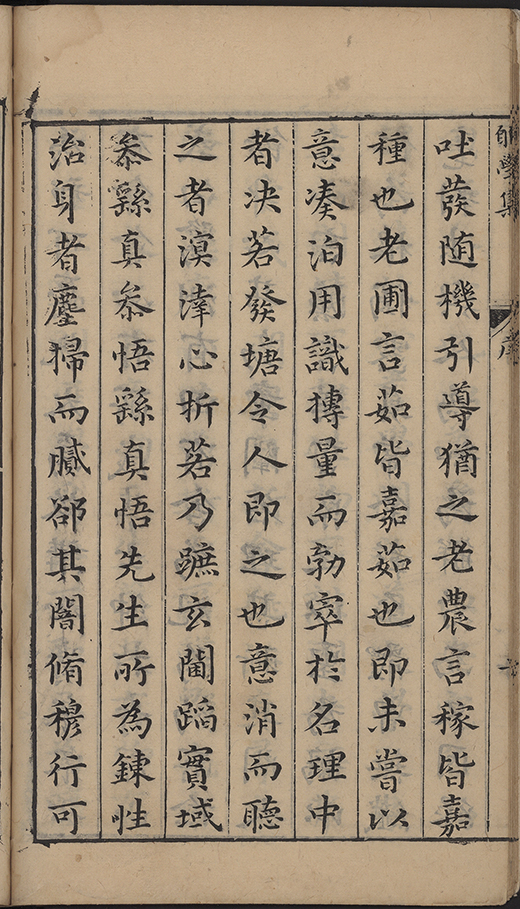 吐蕟随機引導猶之老農言稼皆嘉
種也老圃言茹皆嘉茹也即未嘗以
意凑泊用識摶量而勃窣於名理中
者决若發塘令人即之也意消而聴
之者溟涬心折若乃蹠玄閫蹈實域
叅繇真叅悟繇真悟先生所為鍊性
治身者塵掃而膩郤其闇脩穆行可